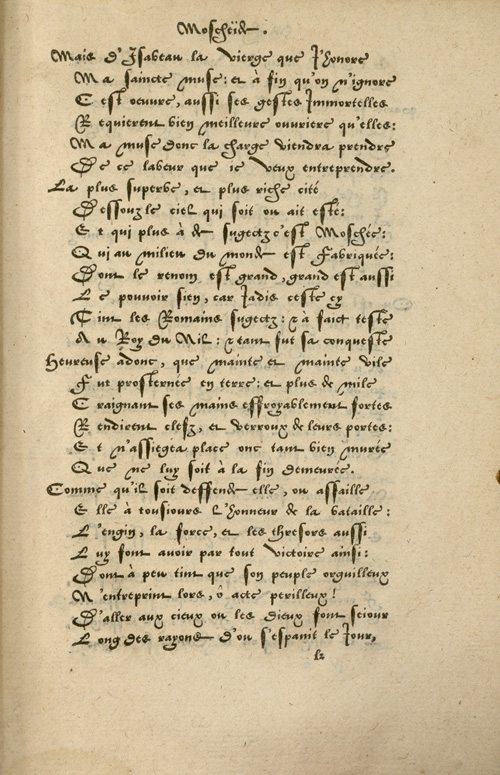 Moscheide.
Mais d'Isabeau la vierge que j'honore
Ma saincte muse: et à fin qu'on n'ignore
C'est oeuvre, aussi ses gestes Immortelles
Requierent bien meilleure ouvriere qu'elles:
Ma muse donc la charge viendra prendre
De ce labeur que ie veux entreprendre.
La plus superbe, et plus riche cité
Dessouz le ciel qui soit ou ait esté:
Et qui plus à de sugectz c'est Moschée:
Qui au milieu du monde est fabriquée:
Dont le renom est grand, grand est aussi
Le pouvoir sien, car Jadis ceste cy
Tint les Romains sugectz: & à faict teste
Au Roy du Nil: & tant fut sa conqueste
Heureuse adonc, que mainte et mainte vile
Fut prosternée en terre: et plus de mile
Craignant ses mains effroyablement fortes
Rendirent clefz, et verroux de leurs portes:
Et n'assiegea place onc tant bien murée
Que ne luy soit à la fin demeurée.
Comme qu'il soit deffende elle, ou assaille
Elle à tousiours l'honneur de la bataille:
L'engin, la force, et les thresors aussi
Luy font avoir par tout victoire ainsi:
Dont à peu tint que son peuple orguilleux
N'entreprint lors, ô acte perilleux!
D'aller aux cieux ou les Dieux font seiour
Long des rayons d'ou s'espanit le Jour,